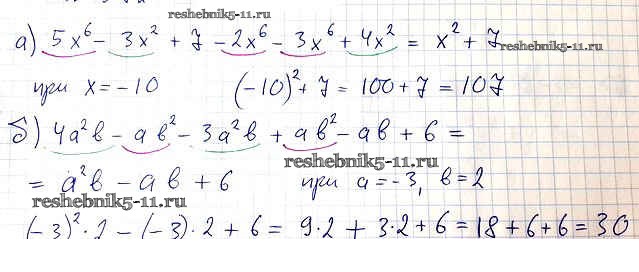 reshebnik5-11.ru
а) 5x⁶ - 3x² + 7 - 2x⁶ - 3x⁶ + 4x² = x² + 7
при x = -10 (-10)² + 7 = 100 + 7 = 107
б) 4a²b - ab² - 3a²b + ab² - ab + 6 =
reshebnik5-11.ru
= a²b - ab + 6 при a = -3, b = 2
reshebnik5-11.ru
(-3)²·2 - (-3)·2 + 6 = 9·2 + 3·2 + 6 = 18 + 6 + 6 = 30